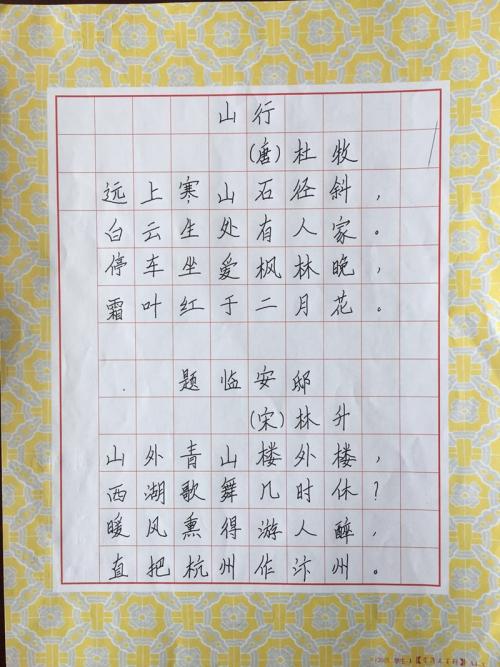 山行
(唐)杜牧
远上寒山石径斜，
白云生处有人家。
停车坐爱枫林晚，
霜叶红于二月花。
题临安邸
(宋)林升
山外青山楼外楼，
西湖歌舞几时休？
暖风熏得游人醉，
直把杭州作汴州。